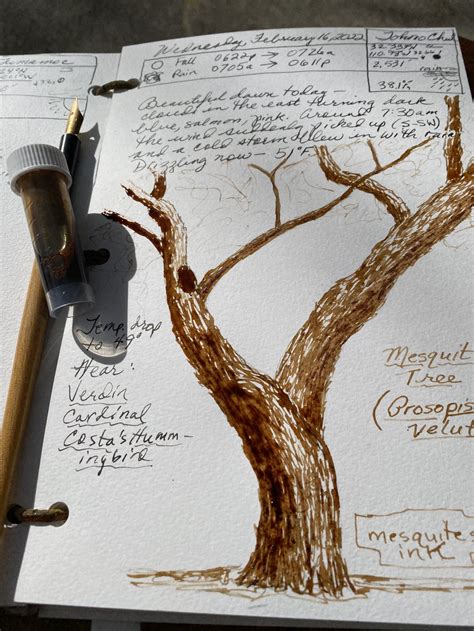 Wednesday, February 16, 2022
Full 0622p → 0726a
Rain 0705a → 0611p
2,531'
rain
38.1"
Beautiful dawn today –
clouds in the east turning dark
blue, salmon, pink. Around 7:30am
the wind suddenly picked up (S-SW)
and a cold storm blew in with rain
Drizzling now – 51°F
Temp. drop
to 49°
Hear:
Verdin
Cardinal
Costa's Humm-
ingbird
Mesquit
Tree
(Prosopis
velut
mesquite s
ink